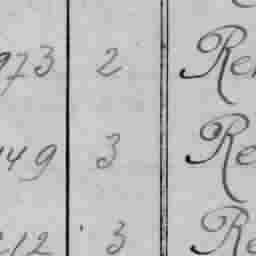 973 2 Re
149 3 Re
212 3 Re